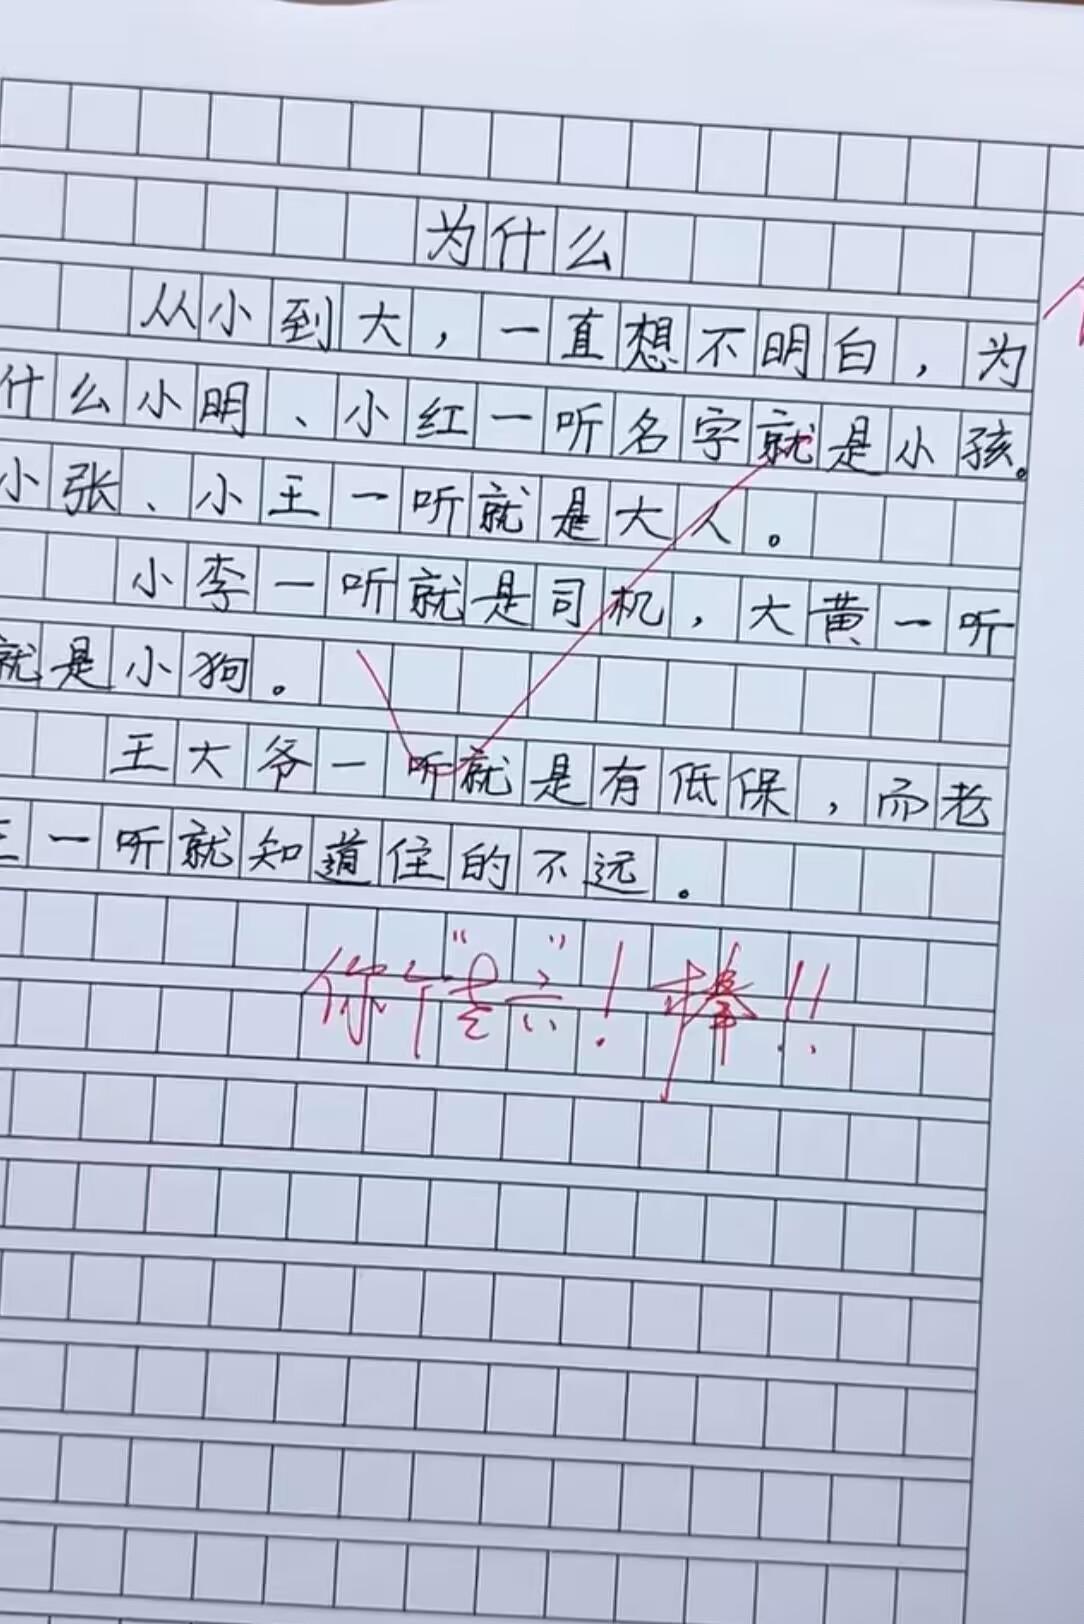 为什么
从小到大，一直想不明白，为
什么小明、小红一听名字就是小孩。
小张、小王一听就是大人。
小李一听就是司机，大黄一听
就是小狗。
王大爷一听就是有低保，而老
王一听就知道住的不远。
你个"老六"！棒！！